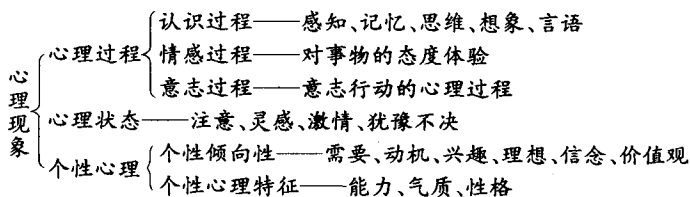 心理现象
心理过程
认识过程——感知、记忆、思维、想象、言语
情感过程——对事物的态度体验
意志过程——意志行动的心理过程
心理状态——注意、灵感、激情、犹豫不决
个性心理
个性倾向性——需要、动机、兴趣、理想、信念、价值观
个性心理特征——能力、气质、性格